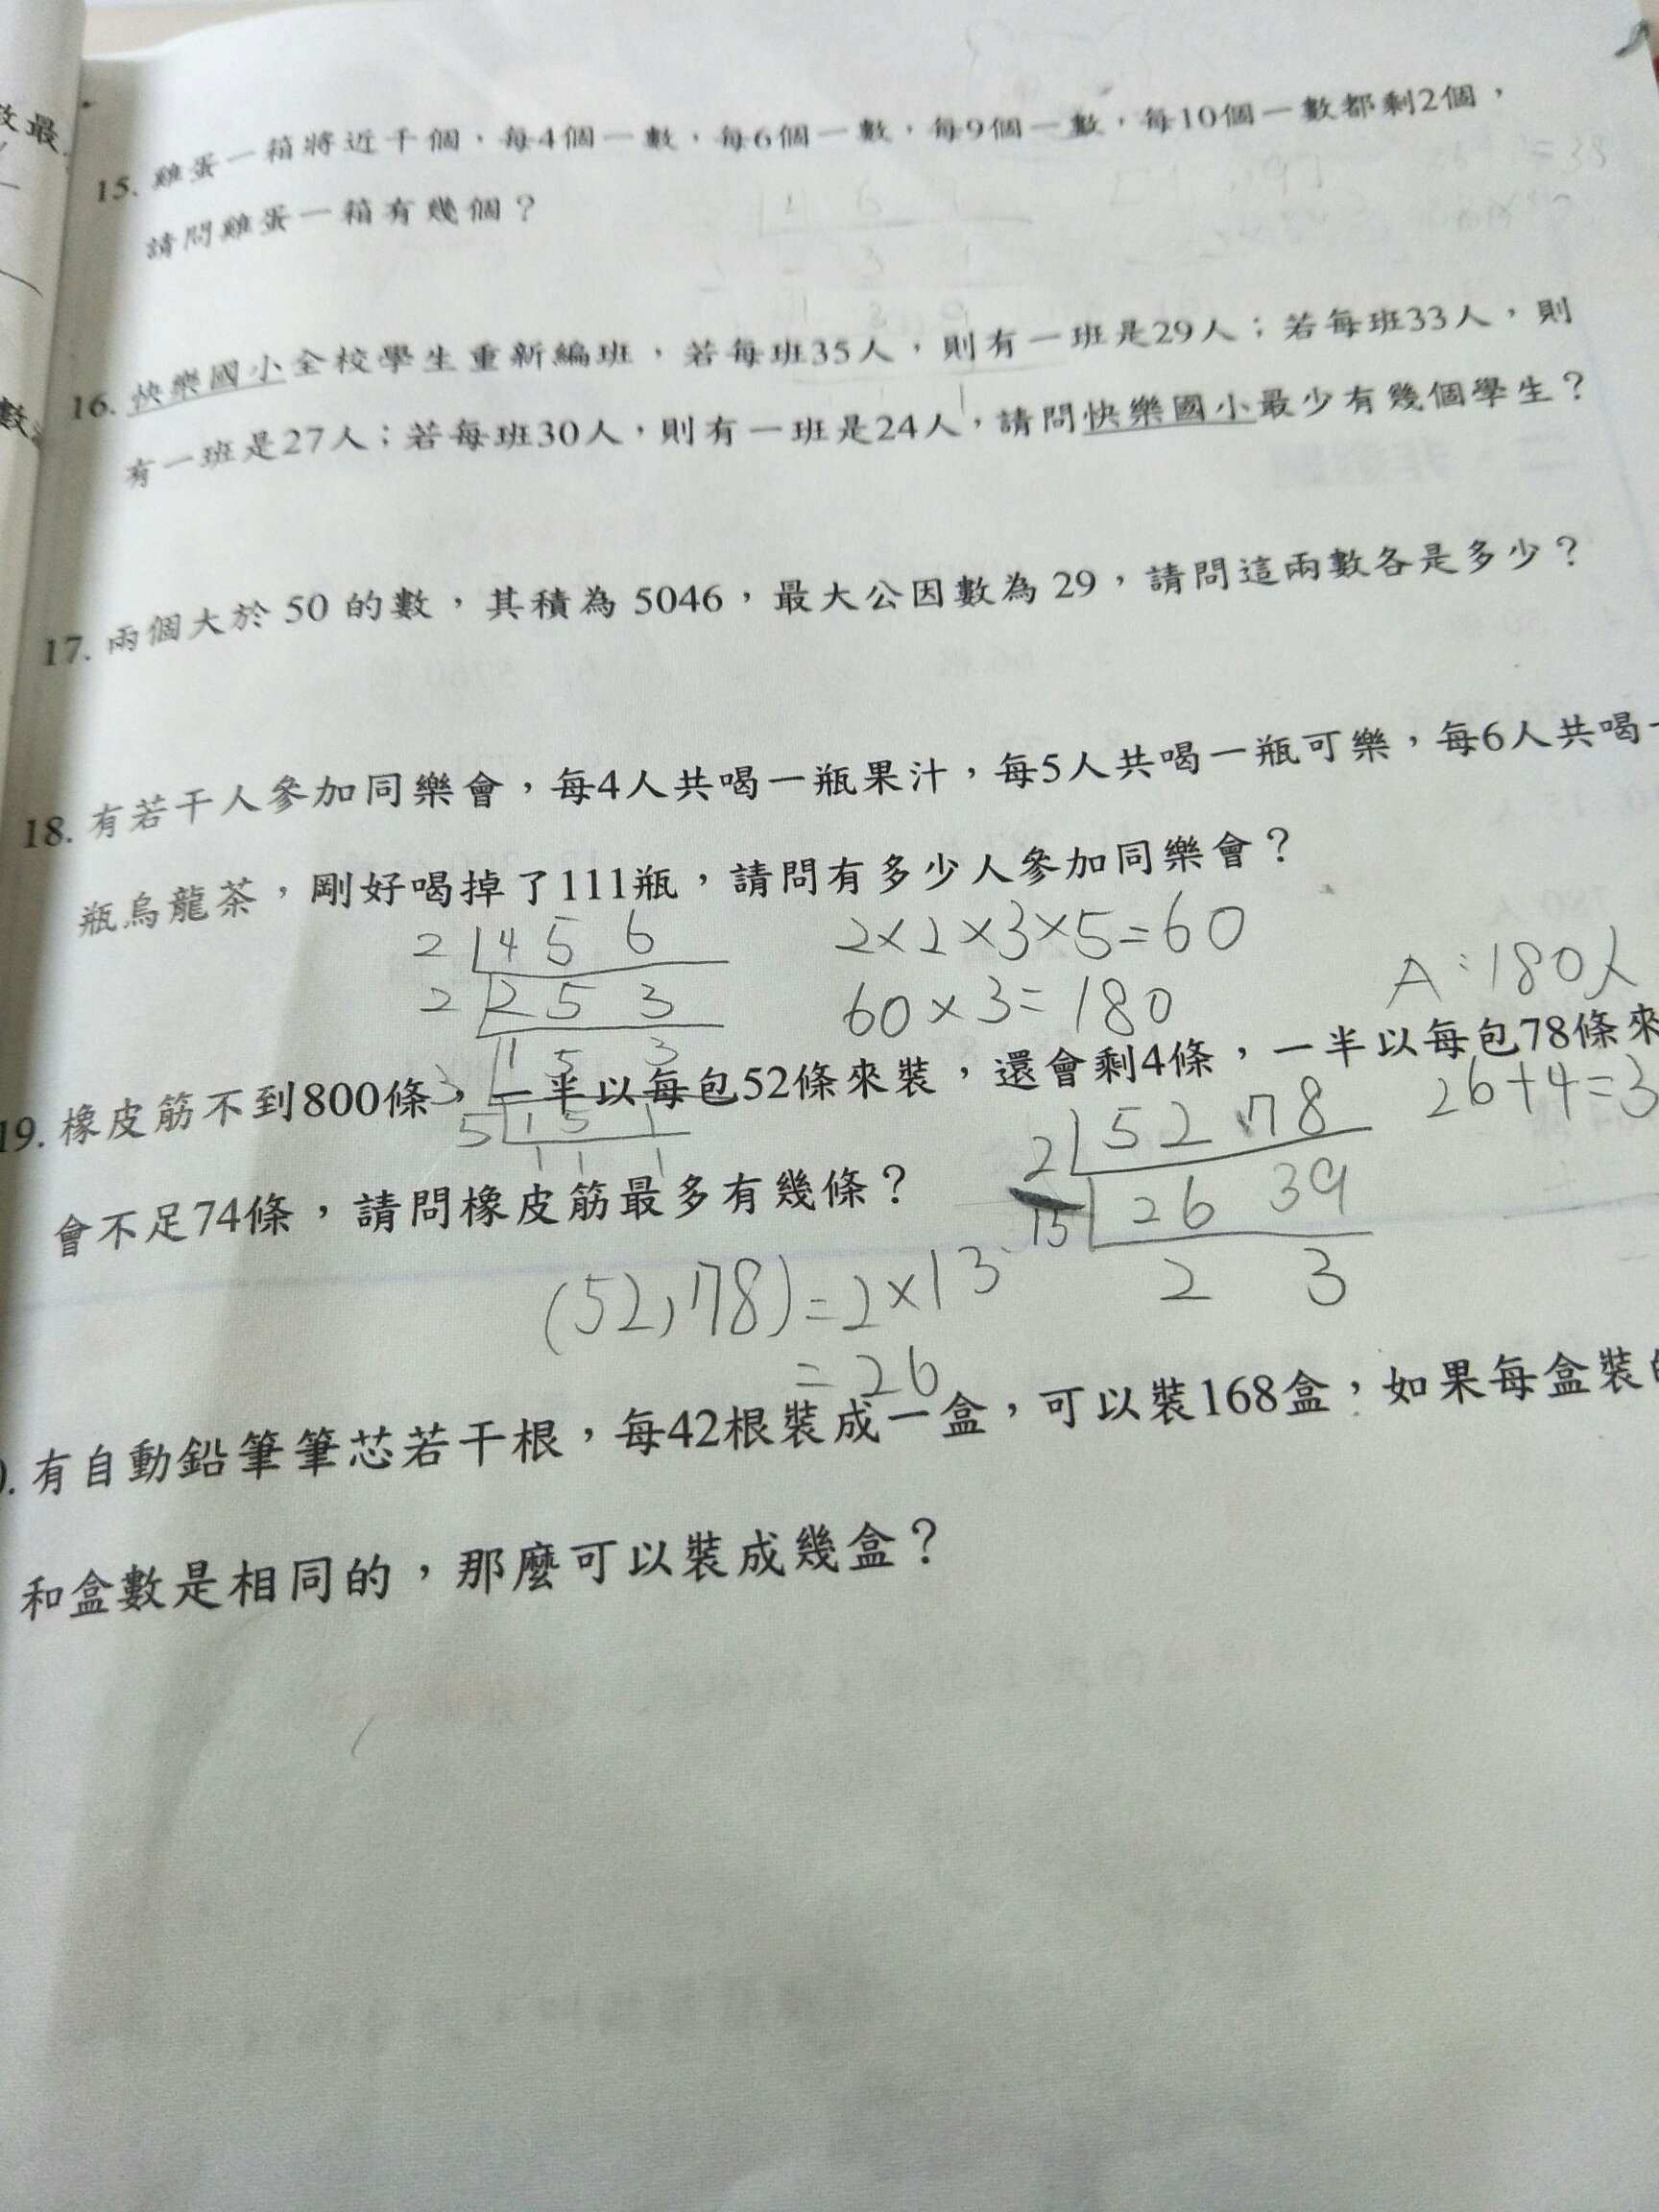 數最
數
15. 雞蛋一箱將近千個，每4個一數，每6個一數，每9個一數，每10個一數都剩2個，
請問雞蛋一箱有幾個？
16. 快樂國小全校學生重新編班，若每班35人，則有一班是29人；若每班33人，則
有一班是27人；若每班30人，則有一班是24人，請問快樂國小最少有幾個學生？
17. 兩個大於 50 的數，其積為 5046，最大公因數為 29，請問這兩數各是多少？
18. 有若干人參加同樂會，每4人共喝一瓶果汁，每5人共喝一瓶可樂，每6人共喝一
瓶烏龍茶，剛好喝掉了111瓶，請問有多少人參加同樂會？
2 4 5 6
2×2×3×5=60
2 2 5 3
60×3=180
A:180人
3 1 5 3
5 1 5 1
1 1 1
19. 橡皮筋不到800條，一半以每包52條來裝，還會剩4條，一半以每包78條來
會不足74條，請問橡皮筋最多有幾條？
2 52 78
26+4=3
13 26 39
2 3
(52,78)=2×13
=26
. 有自動鉛筆筆芯若干根，每42根裝成一盒，可以裝168盒，如果每盒裝的
和盒數是相同的，那麼可以裝成幾盒？